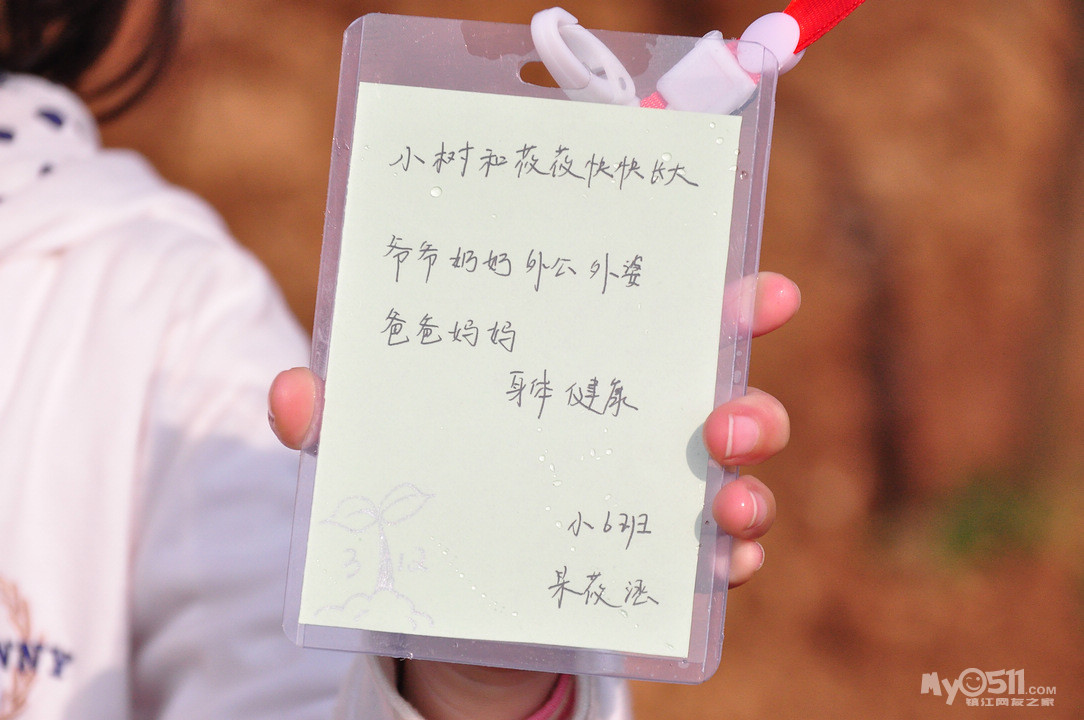 小树和莜莜快快长大
爷爷奶奶外公外婆
爸爸妈妈
身体健康
小6班
莜涵
3 12
NNY
My0511.COM
镇江网友之家